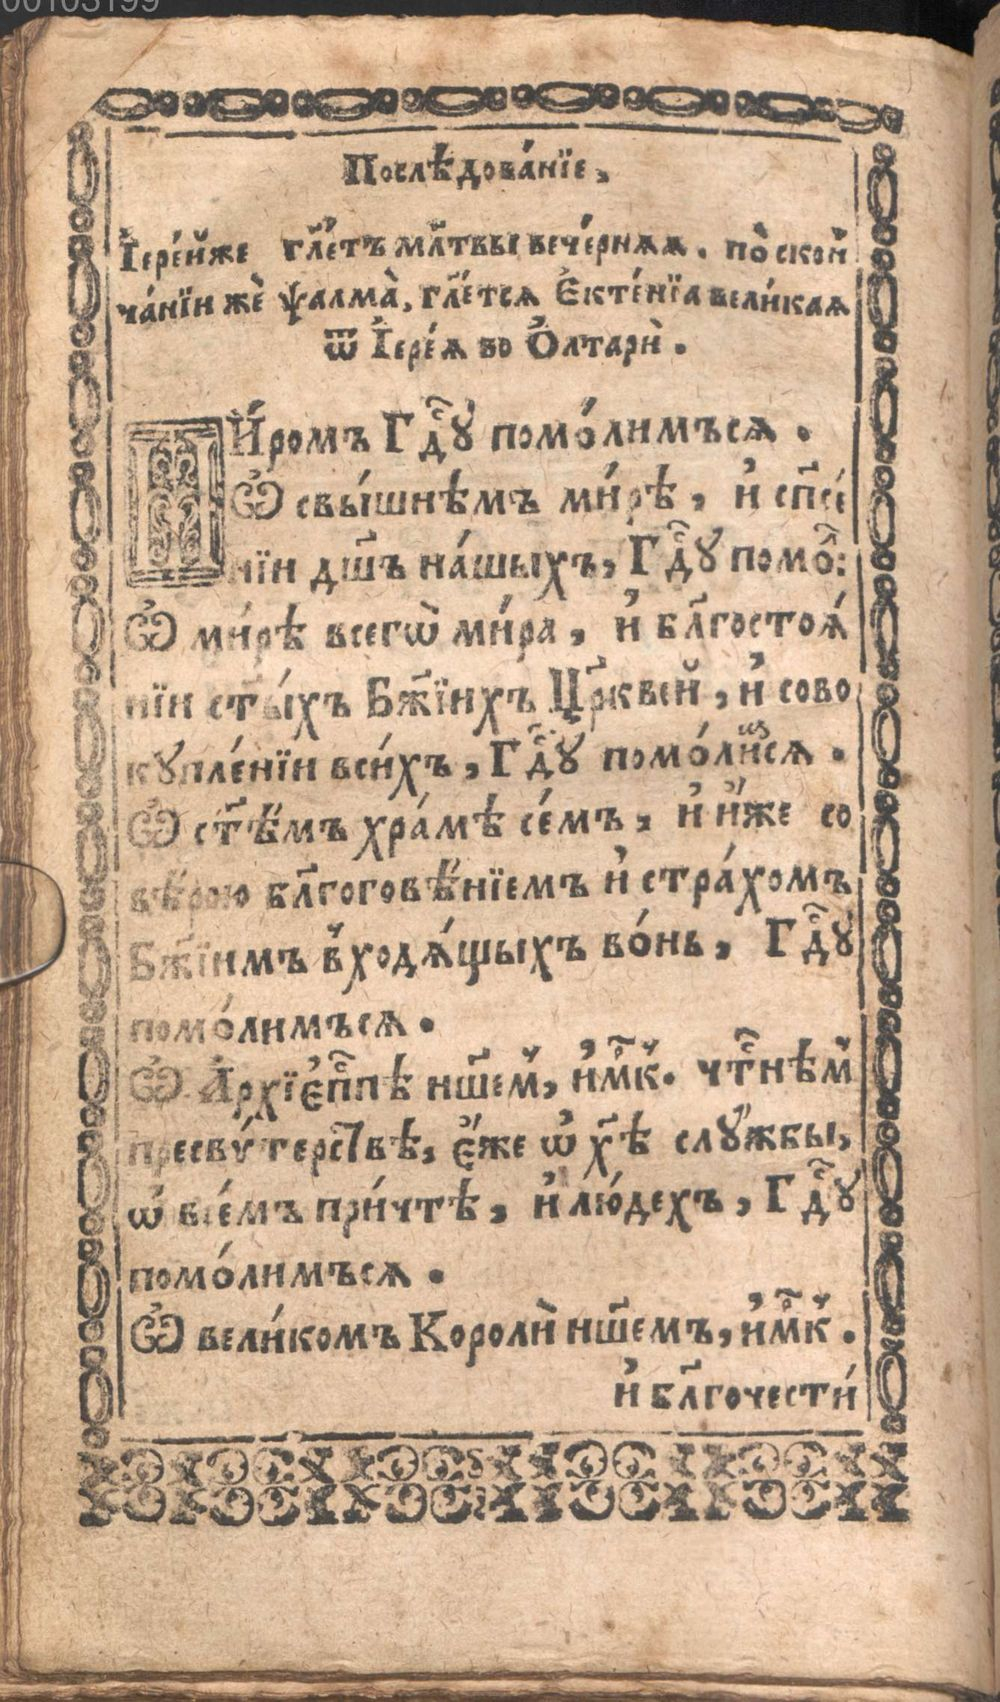 00103199
Послѣдова́нїе,
І҆ере́й же гл҃етъ мл҃твы вече́рнѧѧ. по̀ скон
ча́нїи жѐ ѱалма̀, гл҃етсѧ Є҆кте́нїа вели́каѧ
ѿ І҆ере́ѧ во Ѻ҆лтарѝ.
Ми́ромъ Гдⷭ҇ꙋ помо́лимъсѧ.
Ѽ свы́шнѣмъ ми́рѣ, и҆ сп҃се́
нїи дш҃ъ на́шыхъ, Гдⷭ҇ꙋ помоⷧ҇:
Ѽ ми́рѣ всегѡ̀ ми́ра, и҆ бл҃госто́ѧ
нїи ст҃ы́хъ Бж҃їихъ Цр҃квей, и҆ сово
кꙋпле́нїи все́ихъ, Гдⷭ҇ꙋ помо́лиⷨсѧ.
Ѽ ст҃ѣ́мъ хра́мѣ се́мъ, и҆ и҆́же со
вѣ́рою бл҃гоговѣ́нїемъ и҆ стра́хомъ
Бж҃їимъ в̾ходѧ́щыхъ во́нь, Гдⷭ҇ꙋ
помо́лимъсѧ.
Ѽ А҆рхїє҆пⷭ҇пѣ нш҃емъ̾, и҆мⷬ҇к̾. чтⷭ҇нѣм̾
пресвѵ́терст҃вѣ, є҆́же ѡ҆ хⷭ҇ѣ слꙋ́жбы,
ѡ҆ все́мъ при́чтѣ, и҆ лю́дехъ, Гдⷭ҇ꙋ
помо́лимъсѧ.
Ѽ вели́комъ Королѝ нш҃емъ, и҆мⷬ҇к̾.
и҆ бл҃гочести́